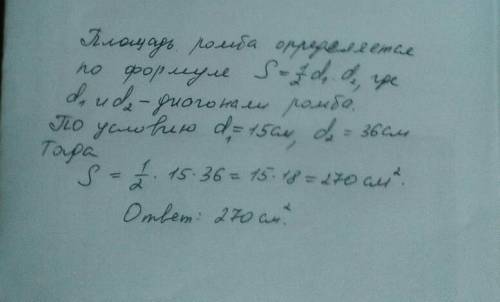 Площадь ромба определяется
по формуле S = 1/2 d₁ · d₂, где
d₁ и d₂ - диогонали ромба.
По условию d₁ = 15см, d₂ = 36см
Тогда
S = 1/2 · 15 · 36 = 15 · 18 = 270 см².
Ответ: 270 см².